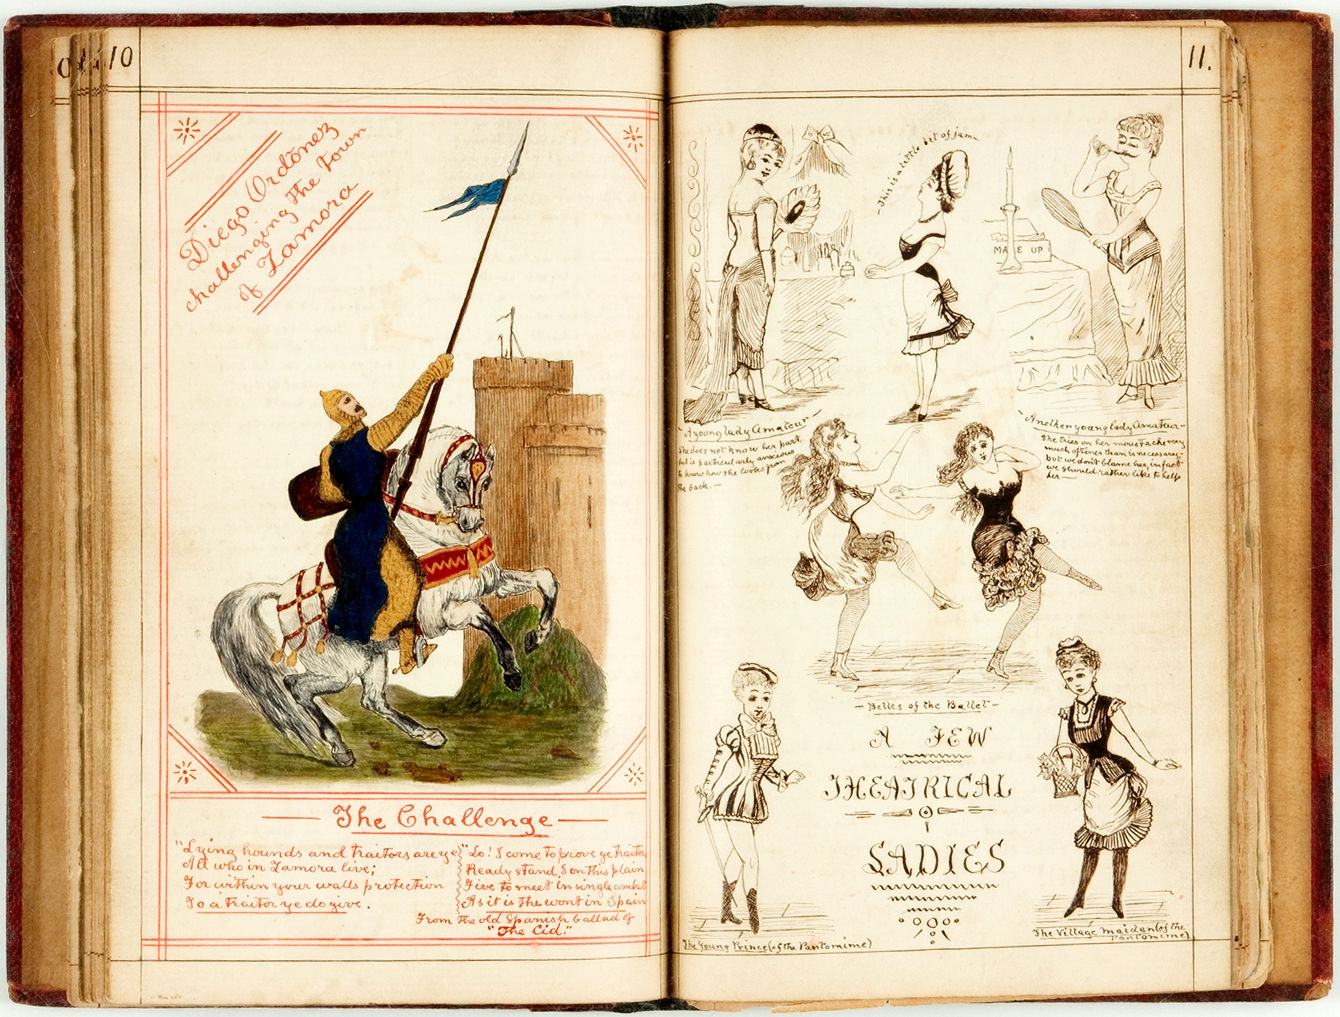 10
Diego Ordõnez
challenging the town
of Zamora
The Challenge
"Lying hounds and traitors are ye
All who in Zamora live;
For within your walls protection
To a traitor ye do give.
"Lo! I come to prove ye traitors
Ready stand, I on this plain
Five to meet in single combat
As it is the wont in Spain
From the old Spanish ballad of
"The Cid."
11.
- This is a little bit of jam
MAKE UP
- A young lady Amateur -
She does not know her part
but is particularly anxious
to know how she looks from
the back. -
- Another young lady Amateur -
She tries on her moustache very
much oftener than is necessary
but we don't blame her, in fact
we should rather like to help
her -
- Belles of the Ballet -
A FEW
THEATRICAL
LADIES
The Young Prince (of the Pantomime)
The Village maiden (of the
Pantomime)